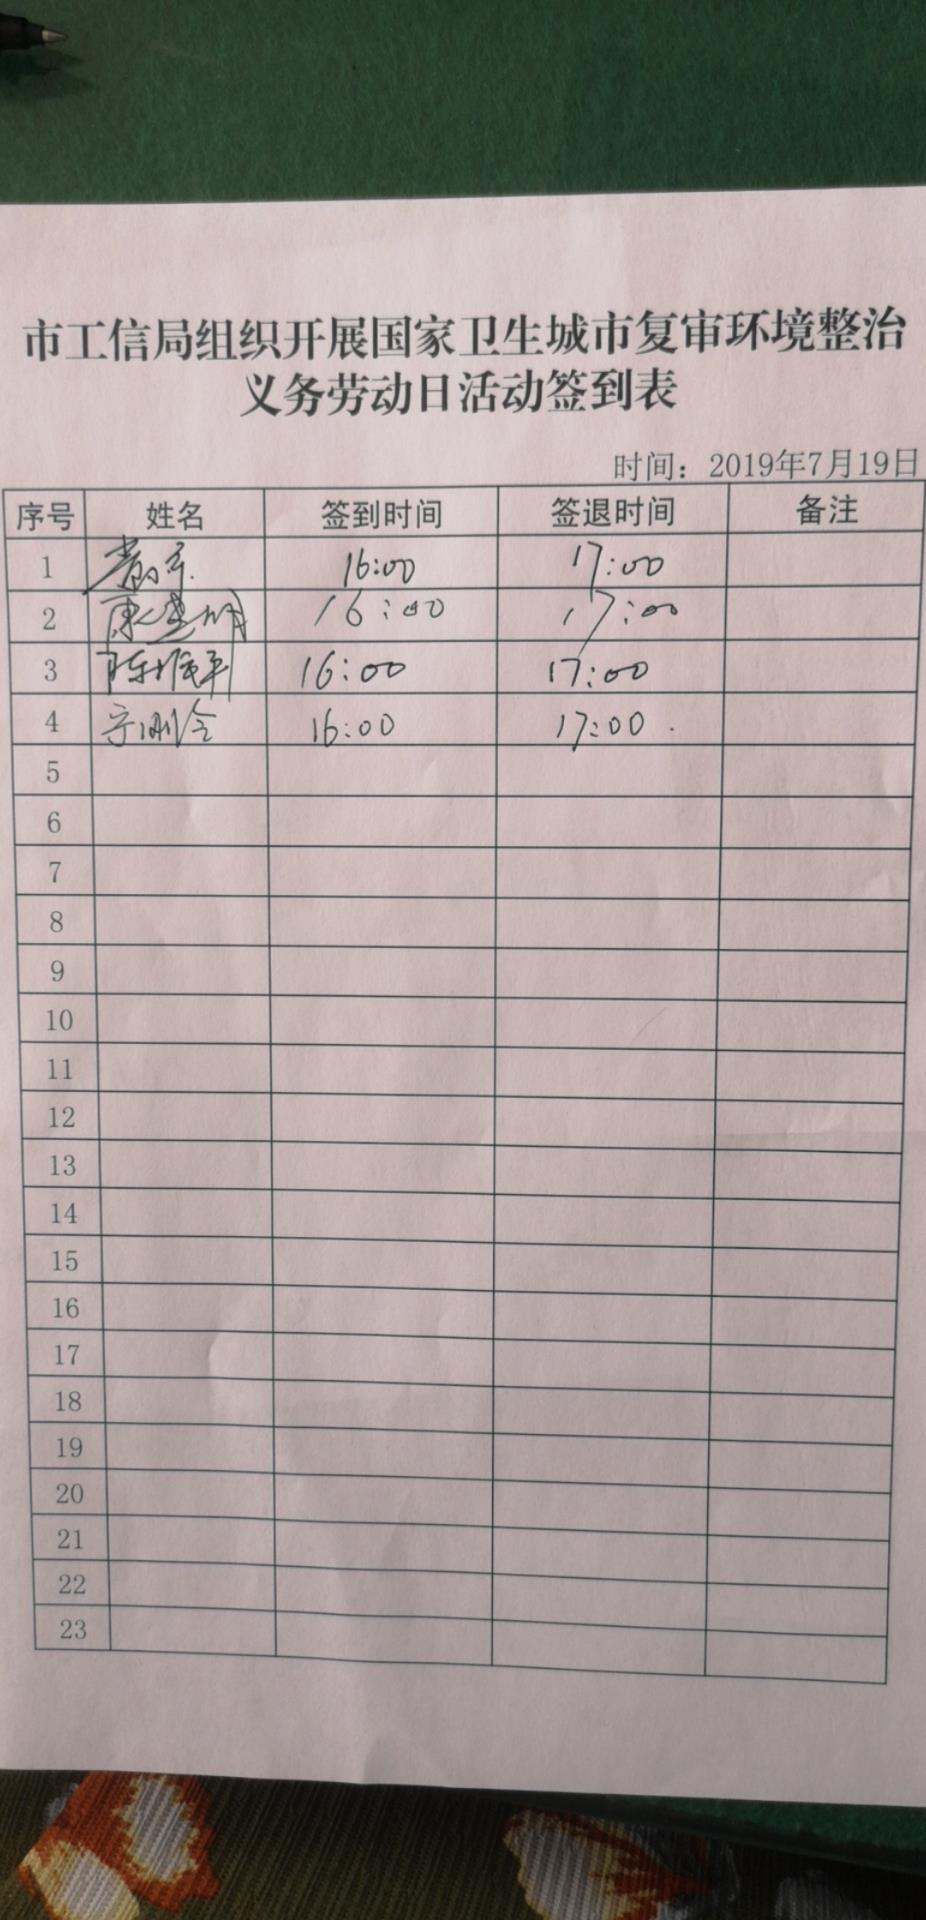 市工信局组织开展国家卫生城市复审环境整治
义务劳动日活动签到表
时间：2019年7月19日
序号 姓名 签到时间 签退时间 备注
1 16:00 17:00
2 16:00 17:00
3 16:00 17:00
4 16:00 17:00
5
6
7
8
9
10
11
12
13
14
15
16
17
18
19
20
21
22
23